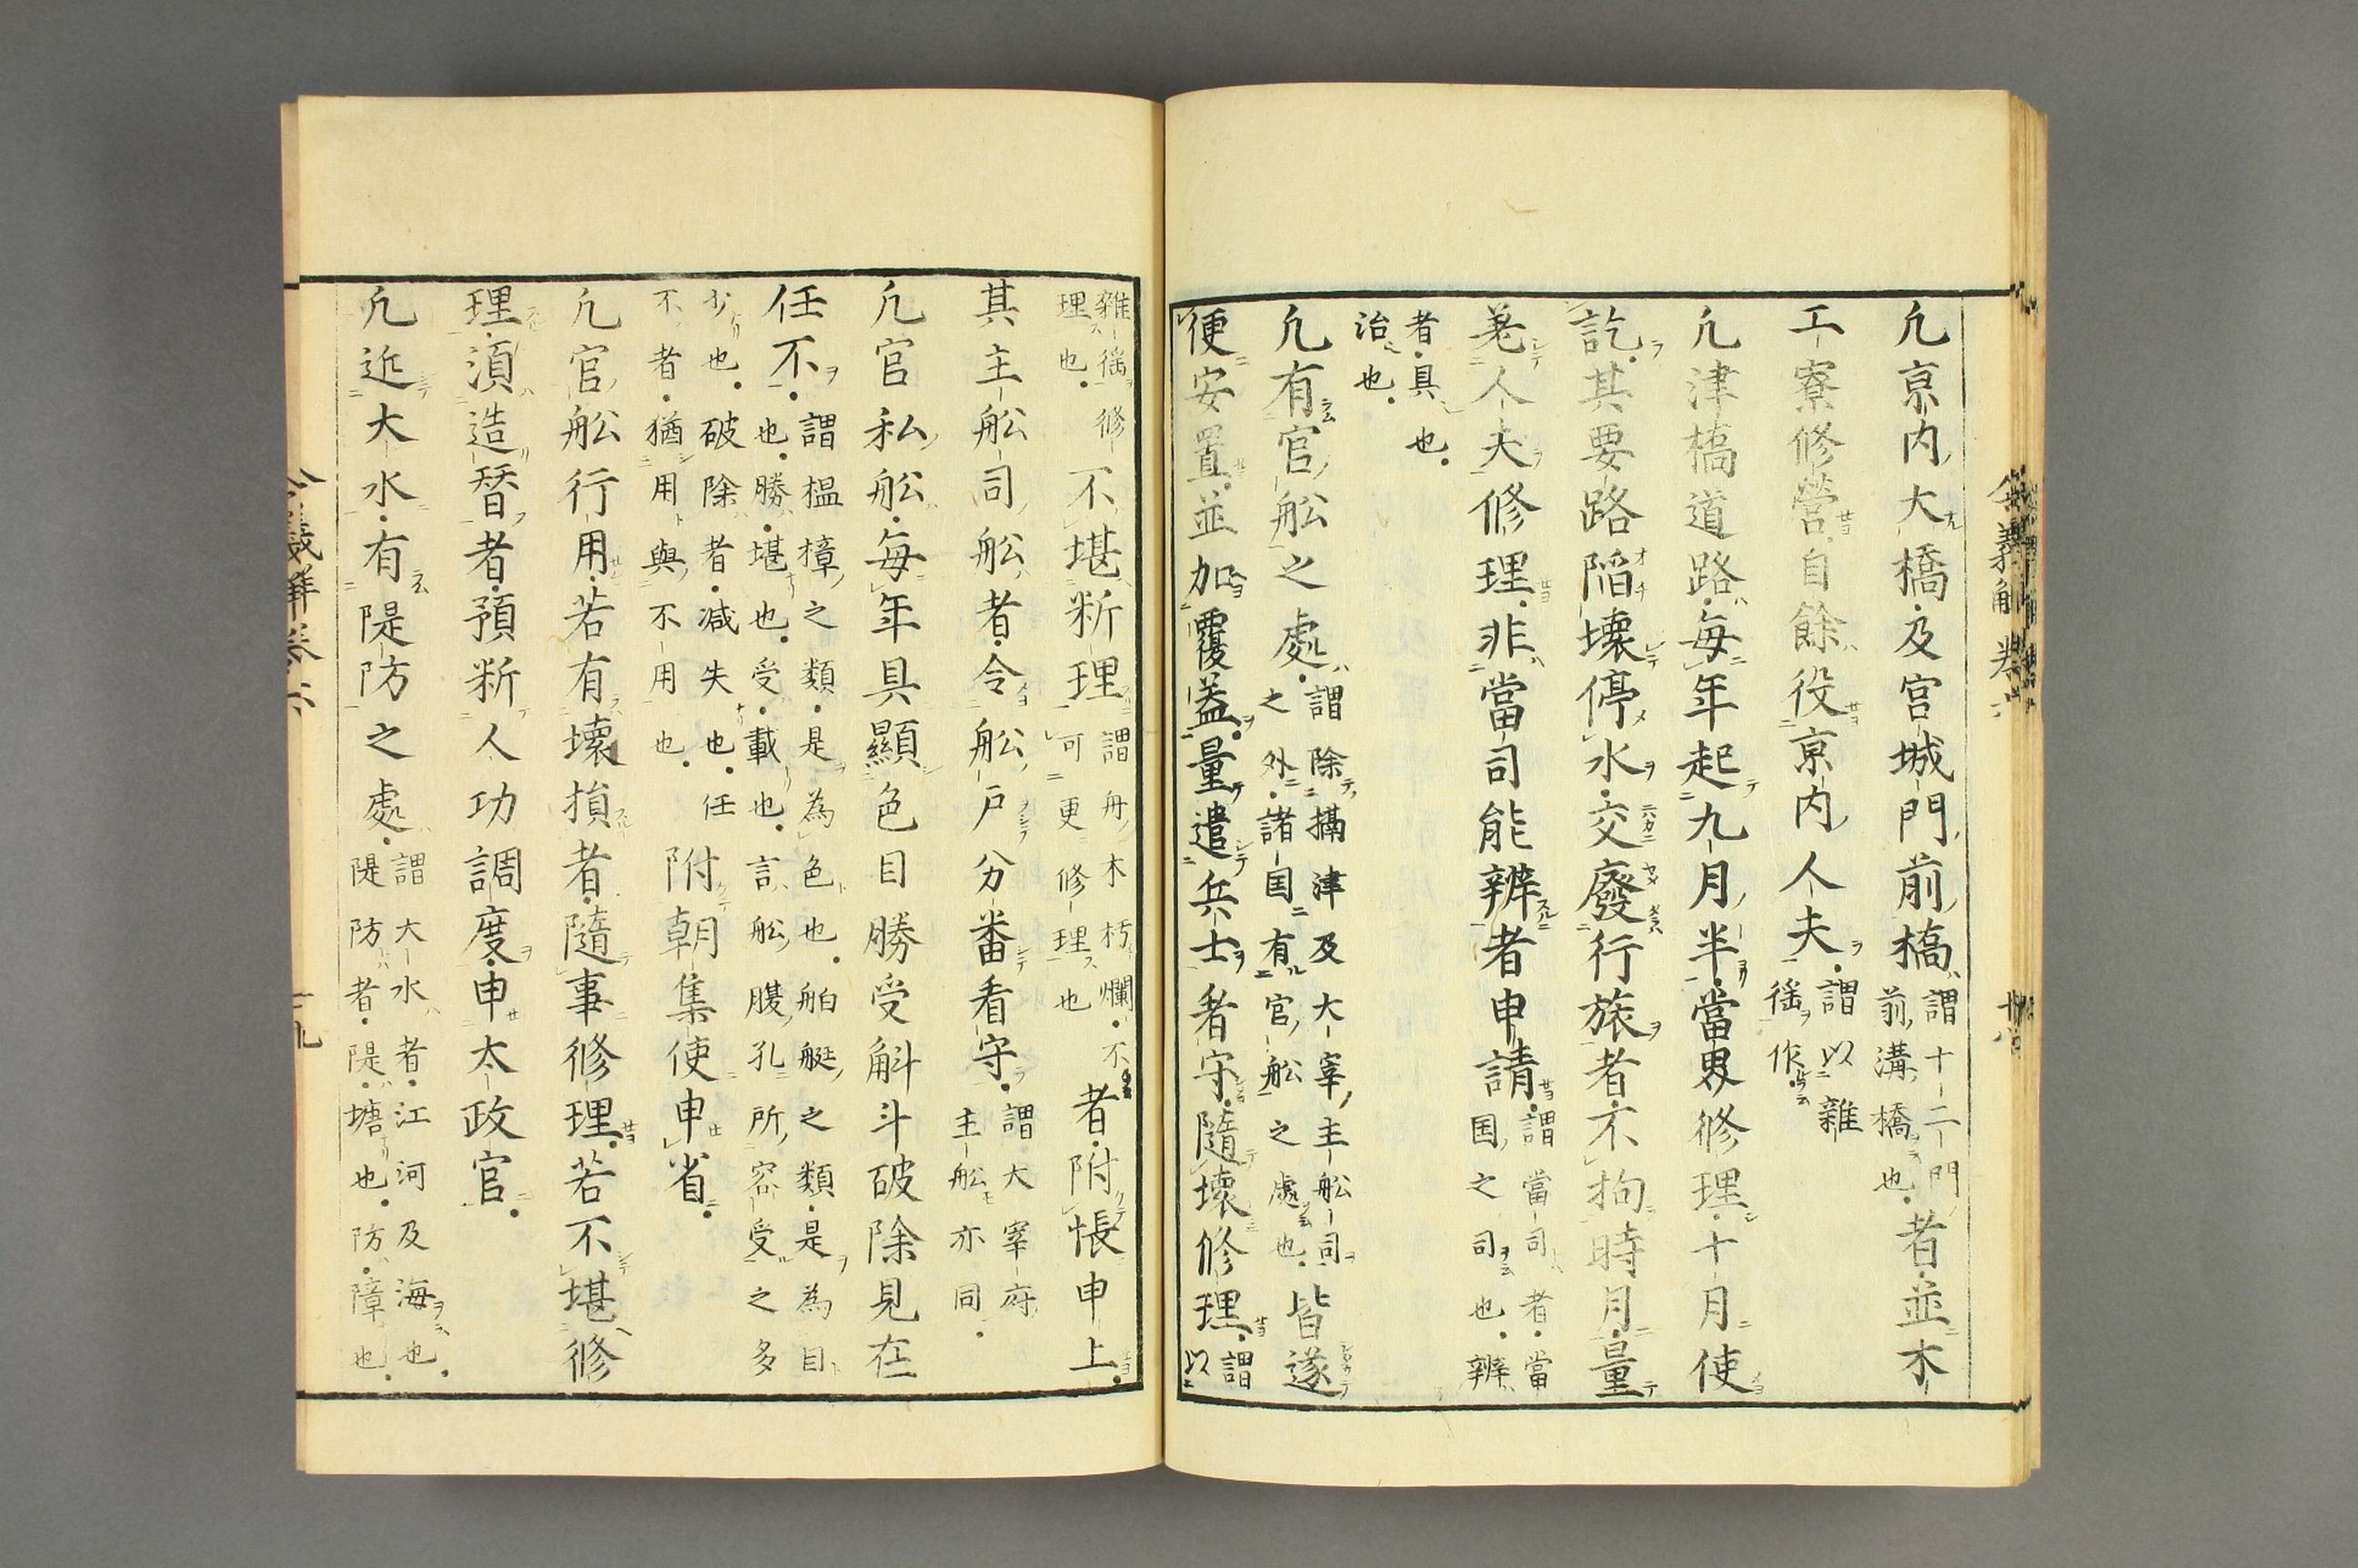 凢京内大橋及宮城門前橋謂十二門前溝橋也者並木
工寮修營自餘役京内人夫謂以雜徭作
凢津橋道路毎年起九月半當界修理十月使
訖其要路陷壞停水交廢行旅者不拘時月量
差人夫修理非當司能辨者申請謂當司者當国之司也辨
者具也治也
凢有官舩之處謂除攝津及大宰主舩司之外諸国有官舩之處也皆逐
便安置並加覆盖量遣兵士看守隨壞修理謂以
雜徭修理也不堪斯理謂舟木朽爛不可更修理也者附帳申上
其主舩司舩者令舩戸分番看守謂大宰府主舩亦同
凢官私舩毎年具顯色目勝受斛斗破除見在
任不謂榲樟之類是為色也舶艇之類是為目也勝堪也受載也言舩腹孔所容受之多
少也破除者減失也任不者猶用與不用也附朝集使申省
凢官舩行用若有壞損者隨事修理若不堪修
理湏造替者預斯人功調度申太政官
凢近大水有隄防之處謂大水者江河及海也隄防者隄塘也防障也
令義解卷六
十九